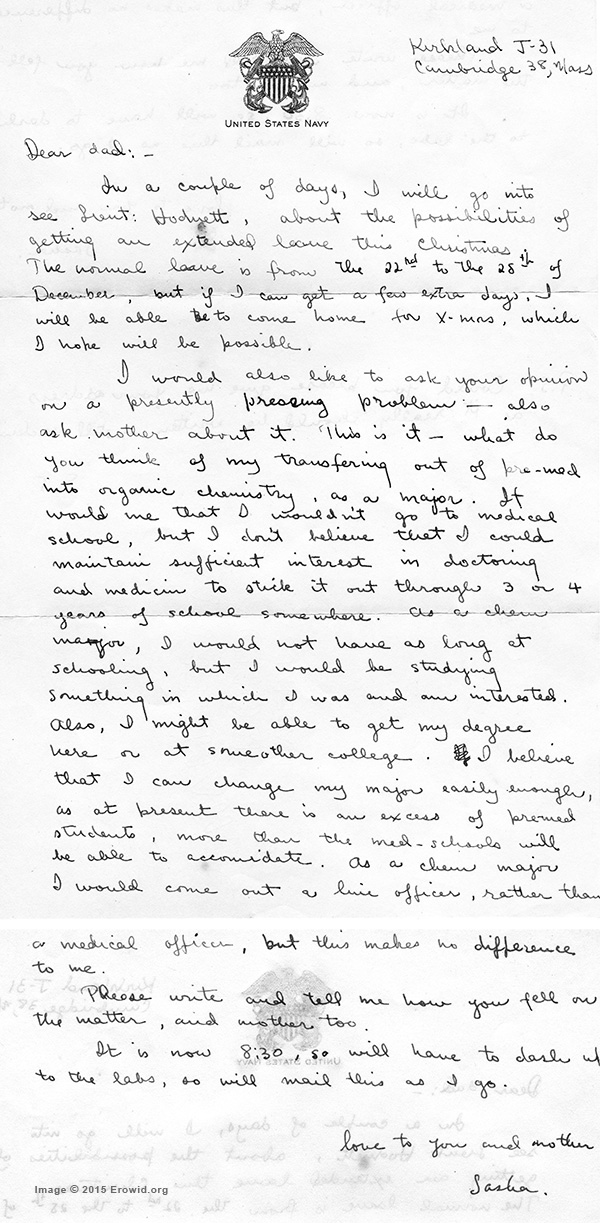 Kirkland J-31
Cambridge 38, Mass
UNITED STATES NAVY
Dear dad: -
In a couple of days, I will go into
see Lieut: Hodgett, about the possibilities of
getting an extended leave this Christmas.
The normal leave is from the 22nd to the 28th of
December, but if I can get a few extra days, I
will be able to come home for X-mas, which
I hope will be possible.
I would also like to ask your opinion
on a presently pressing problem — also
ask mother about it. This is it — what do
you think of my transfering out of pre-med
into organic chemistry, as a major. It
would me that I wouldn't go to medical
school, but I don't believe that I could
maintain sufficient interest in doctoring
and medicin to stick it out through 3 or 4
years of school somewhere. As a chem
major, I would not have as long at
schooling, but I would be studying
something in which I was and am interested.
Also, I might be able to get my degree
here or at someother college. I believe
that I can change my major easily enough,
as at present there is an excess of premed
students, more than the med-schools will
be able to accomidate. As a chem major
I would come out a line officer, rather than
a medical officer, but this makes no difference
to me.
Please write and tell me how you fell on
the matter, and mother too.
It is now 8:30, so will have to dash up
to the labs, so will mail this as I go.
love to you and mother
Sasha.
Image © 2015 Erowid.org